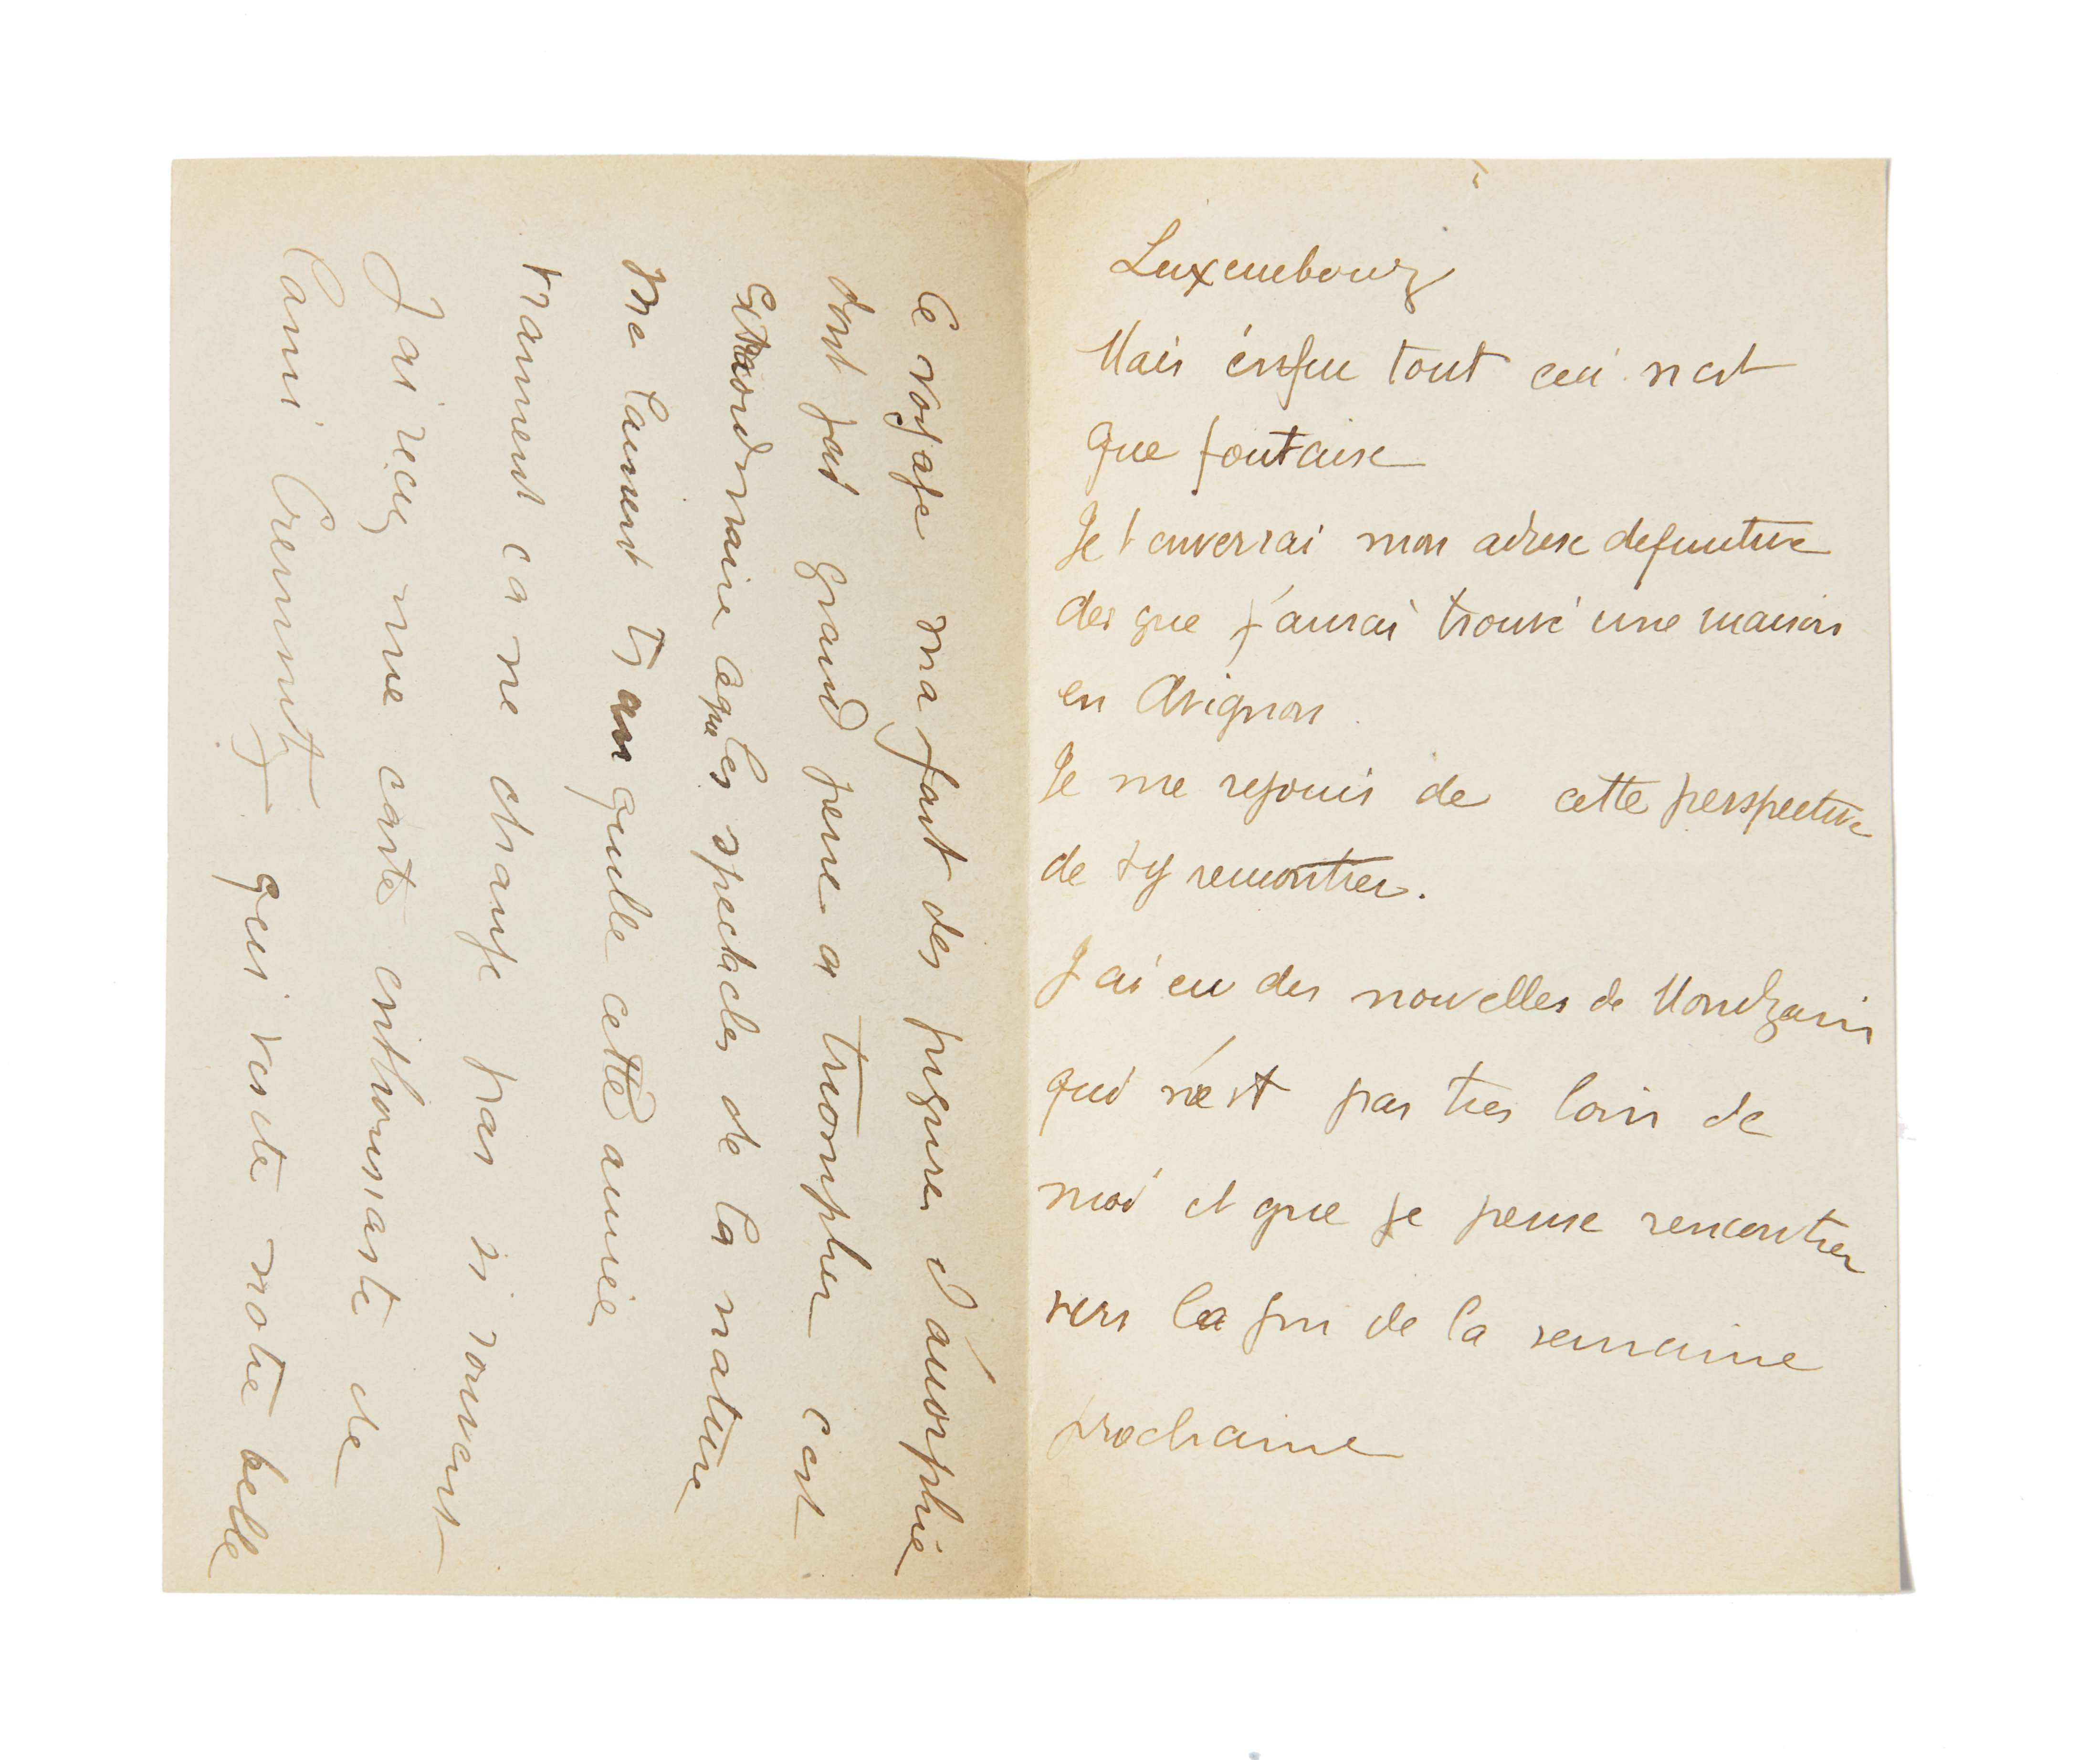 Luxembourg
Mais enfin tout ceci n'est
que foutaise
Je t enverrai mon adresse definitive
des que j'aurai trouvé une maison
en Avignon
Je me rejouis de cette perspective
de t y rencontrer.
J ai eu des nouvelles de Mondzain
qui n'est pas tres loin de
moi et que je pense rencontrer
vers la fin de la semaine
prochaine
Ce voyage ma fait des piqures d'amorphie
dont jai grand peine a triompher cest
extraordinaire ce que les spectacles de la nature
me laissent tranquille cette année
vraiment ca ne change pas si souvent
J ai reçu une carte enthousiaste de
l ami Cremnitz qui visite notre belle